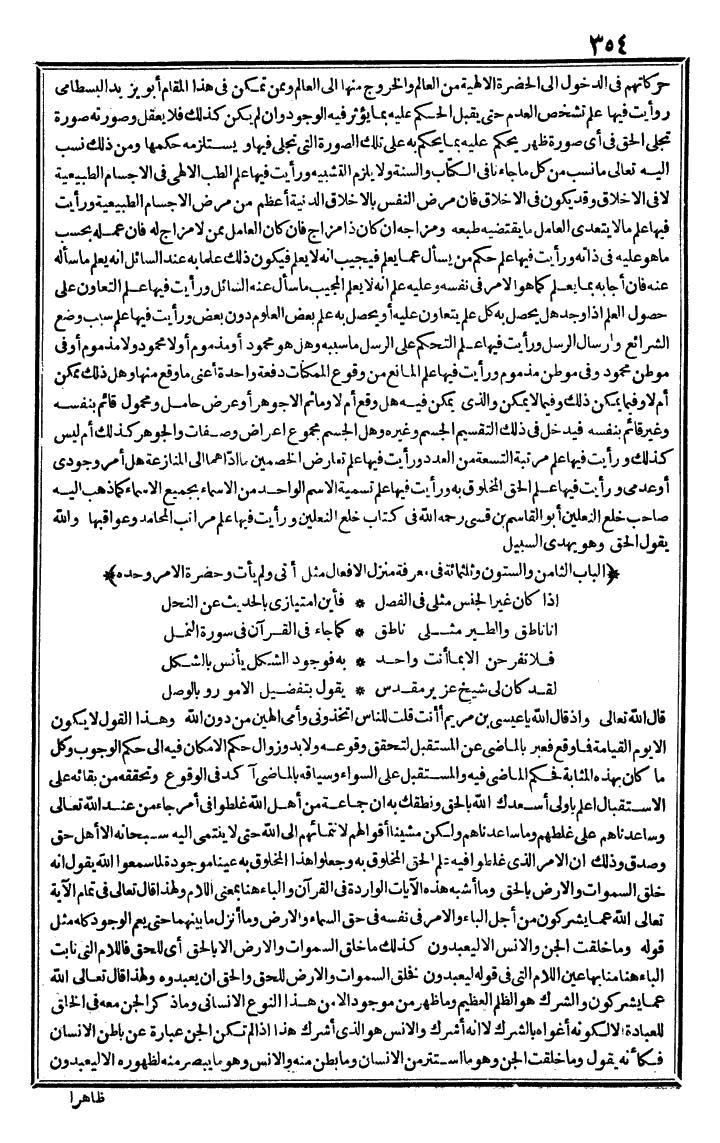 ٣٥٤
حركاتهم فى الدخول الى الحضرة الالهية من العالم والخروج منها الى العالم وممن تمكن فى هذا المقام أبو يزيد البسطامى
ورأيت فيها علم تشخص العدم حتى يقبل الحكم عليه بما يؤثر فيه الوجود وان لم يكن كذلك فلا يعقل وصورته صورة
تجلى الحق فى أى صورة ظهر يحكم عليه بما يحكم به على تلك الصورة التى تجلى فيها و يستلزمه حكمها ومن ذلك نسب
اليه تعالى مانسب من كل ماجاءنا فى الكتاب والسنة ولا يلزم التشبيه ورأيت فيها علم الطب الالهى فى الاجسام الطبيعية
لافى الاخلاق وقد يكون فى الاخلاق فان مرض النفس بالاخلاق الدنية أعظم من مرض الاجسام الطبيعية ورأيت
فيها علم مالا يتعدى العامل ما يقتضيه طبعه ومزاجه ان كان ذا مزاج فان كان العامل ممن لا مزاج له فان عمله بحسب
ماهو عليه فى ذاته ورأيت فيها علم حكم من يسأل عما يعلم فيجيب انه لا يعلم فيكون ذلك علما به عند السائل انه يعلم ماسأله
عنه فان أجابه بما يعلم كماهو الامر فى نفسه وعليه علم انه لا يعلم المجيب ماسأل عنه السائل ورأيت فيها علم التعاون على
حصول العلم اذا وجد هل يحصل به كل علم يتعاون عليه أو يحصل به علم بعض العلوم دون بعض ورأيت فيها علم سبب وضع
الشرائع وارسال الرسل ورأيت فيها علم التحكم على الرسل ماسببه وهل هو محمود أو مذموم أولا محمود ولا مذموم أو فى
موطن محمود وفى موطن مذموم ورأيت فيها علم المانع من وقوع الممكنات دفعة واحدة أعنى ماوقع منها وهل ذلك ممكن
أم لا وفيما يمكن ذلك وفيما لا يمكن والذى يمكن فيه هل وقع أم لا وماثم الاجوهر أو عرض حامل ومحمول قائم بنفسه
وغير قائم بنفسه فيدخل فى ذلك التقسيم الجسم وغيره وهل الجسم مجموع اعراض وصفات والجوهر كذلك أم ليس
كذلك ورأيت فيها علم مرتبة التسعة من العدد ورأيت فيها علم تعارض الخصمين ما اداهما الى المنازعة هل أمر وجودى
أو عدمى ورأيت فيها علم الحق المخلوق به ورأيت فيها علم تسمية الاسم الواحد من الاسماء بجميع الاسماء كماذهب اليه
صاحب خلع النعلين أبو القاسم بن قسى رحمه الله فى كتاب خلع النعلين ورأيت فيها علم مراتب المحامد وعواقبها والله
يقول الحق وهو يهدى السبيل
﴿الباب الثامن والستون وثلثمائة فى معرفة منزل الافعال مثل أتى ولم يأت وحضرة الامر وحده﴾
اذا كان غير الجنس مثلى فى الفصل * فأين امتيازى بالحديث عن النحل
انا ناطق والطير مثلى ناطق * كماجاء فى القرآن فى سورة النمل
فلا تفرحن الابما أنت واحد * به فوجود الشكل يأنس بالشكل
لقد كان لى شيخ عزيز مقدس * يقول بتفضيل الامور و بالوصل
قال الله تعالى واذ قال الله يا عيسى بن مريم أأنت قلت للناس اتخذونى وأمى الهين من دون الله وهذا القول لا يكون
الا يوم القيامة فماوقع فعبر بالماضى عن المستقبل لتحقق وقوعه ولابد وزوال حكم الامكان فيه الى حكم الوجوب وكل
ما كان بهذه المثابة فحكم الماضى فيه والمستقبل على السواء وسياقه بالماضى آكد فى الوقوع وتحققه من بقائه على
الاستقبال اعلم ياولى أسعدك الله بالحق ونطقك به ان جماعة من أهل الله غلطوا فى أمر جاء من عند الله تعالى
وساعدناهم على غلطهم وماساعدناهم ولكن مشينا أقوالهم لانتمائهم الى الله حتى لا ينتمى اليه سبحانه الا أهل حق
وصدق وذلك ان الامر الذى غلطوا فيه علم الحق المخلوق به وجعلوا هذا المخلوق به عينا موجودة لماسمعوا الله يقول انه
خلق السموات والارض بالحق وما أشبه هذه الآيات الواردة فى القرآن والباء هنا بمعنى اللام ولهذا قال تعالى فى تمام الآية
تعالى الله عما يشركون من أجل الباء والامر فى نفسه فى حق السماء والارض وما أنزل ما بينهما حتى يعم الوجود كله مثل
قوله وماخلقت الجن والانس الا ليعبدون كذلك ماخلق السموات والارض الا بالحق أى للحق فاللام التى نابت
الباء هنا منابها عين اللام التى فى قوله ليعبدون فخلق السموات والارض للحق والحق ان يعبدوه ولهذا قال تعالى الله
عما يشركون والشرك هو الظلم العظيم وماظهر من موجود الا من هذا النوع الانسانى وماذكر الجن معه فى الخلق
للعبادة الا لكونه أغواه بالشرك لا انه أشرك والانس هو الذى أشرك هذا اذا لم تكن الجن عبارة عن باطن الانسان
فكأنه يقول وماخلقت الجن وهو ما استتر من الانسان ومابطن منه والانس وهو ما يبصر منه لظهوره الا ليعبدون
ظاهرا